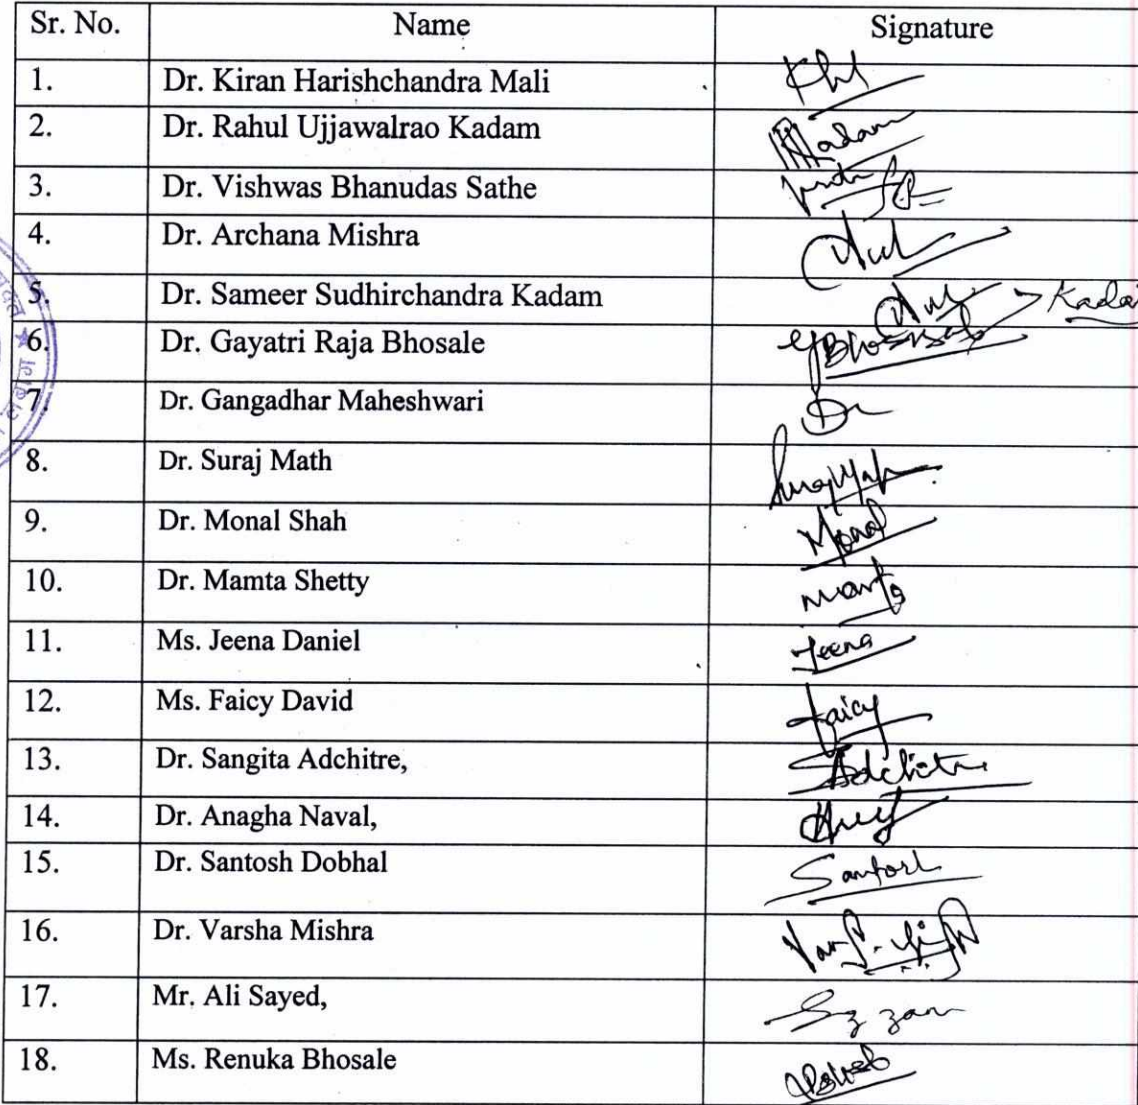 Sr. No. Name Signature
1. Dr. Kiran Harishchandra Mali
2. Dr. Rahul Ujjawalrao Kadam Kadam
3. Dr. Vishwas Bhanudas Sathe
4. Dr. Archana Mishra
5. Dr. Sameer Sudhirchandra Kadam
6. Dr. Gayatri Raja Bhosale
7. Dr. Gangadhar Maheshwari
8. Dr. Suraj Math
9. Dr. Monal Shah Monal
10. Dr. Mamta Shetty
11. Ms. Jeena Daniel Jeena
12. Ms. Faicy David Faicy
13. Dr. Sangita Adchitre, Adchitre
14. Dr. Anagha Naval,
15. Dr. Santosh Dobhal Santosh
16. Dr. Varsha Mishra
17. Mr. Ali Sayed,
18. Ms. Renuka Bhosale